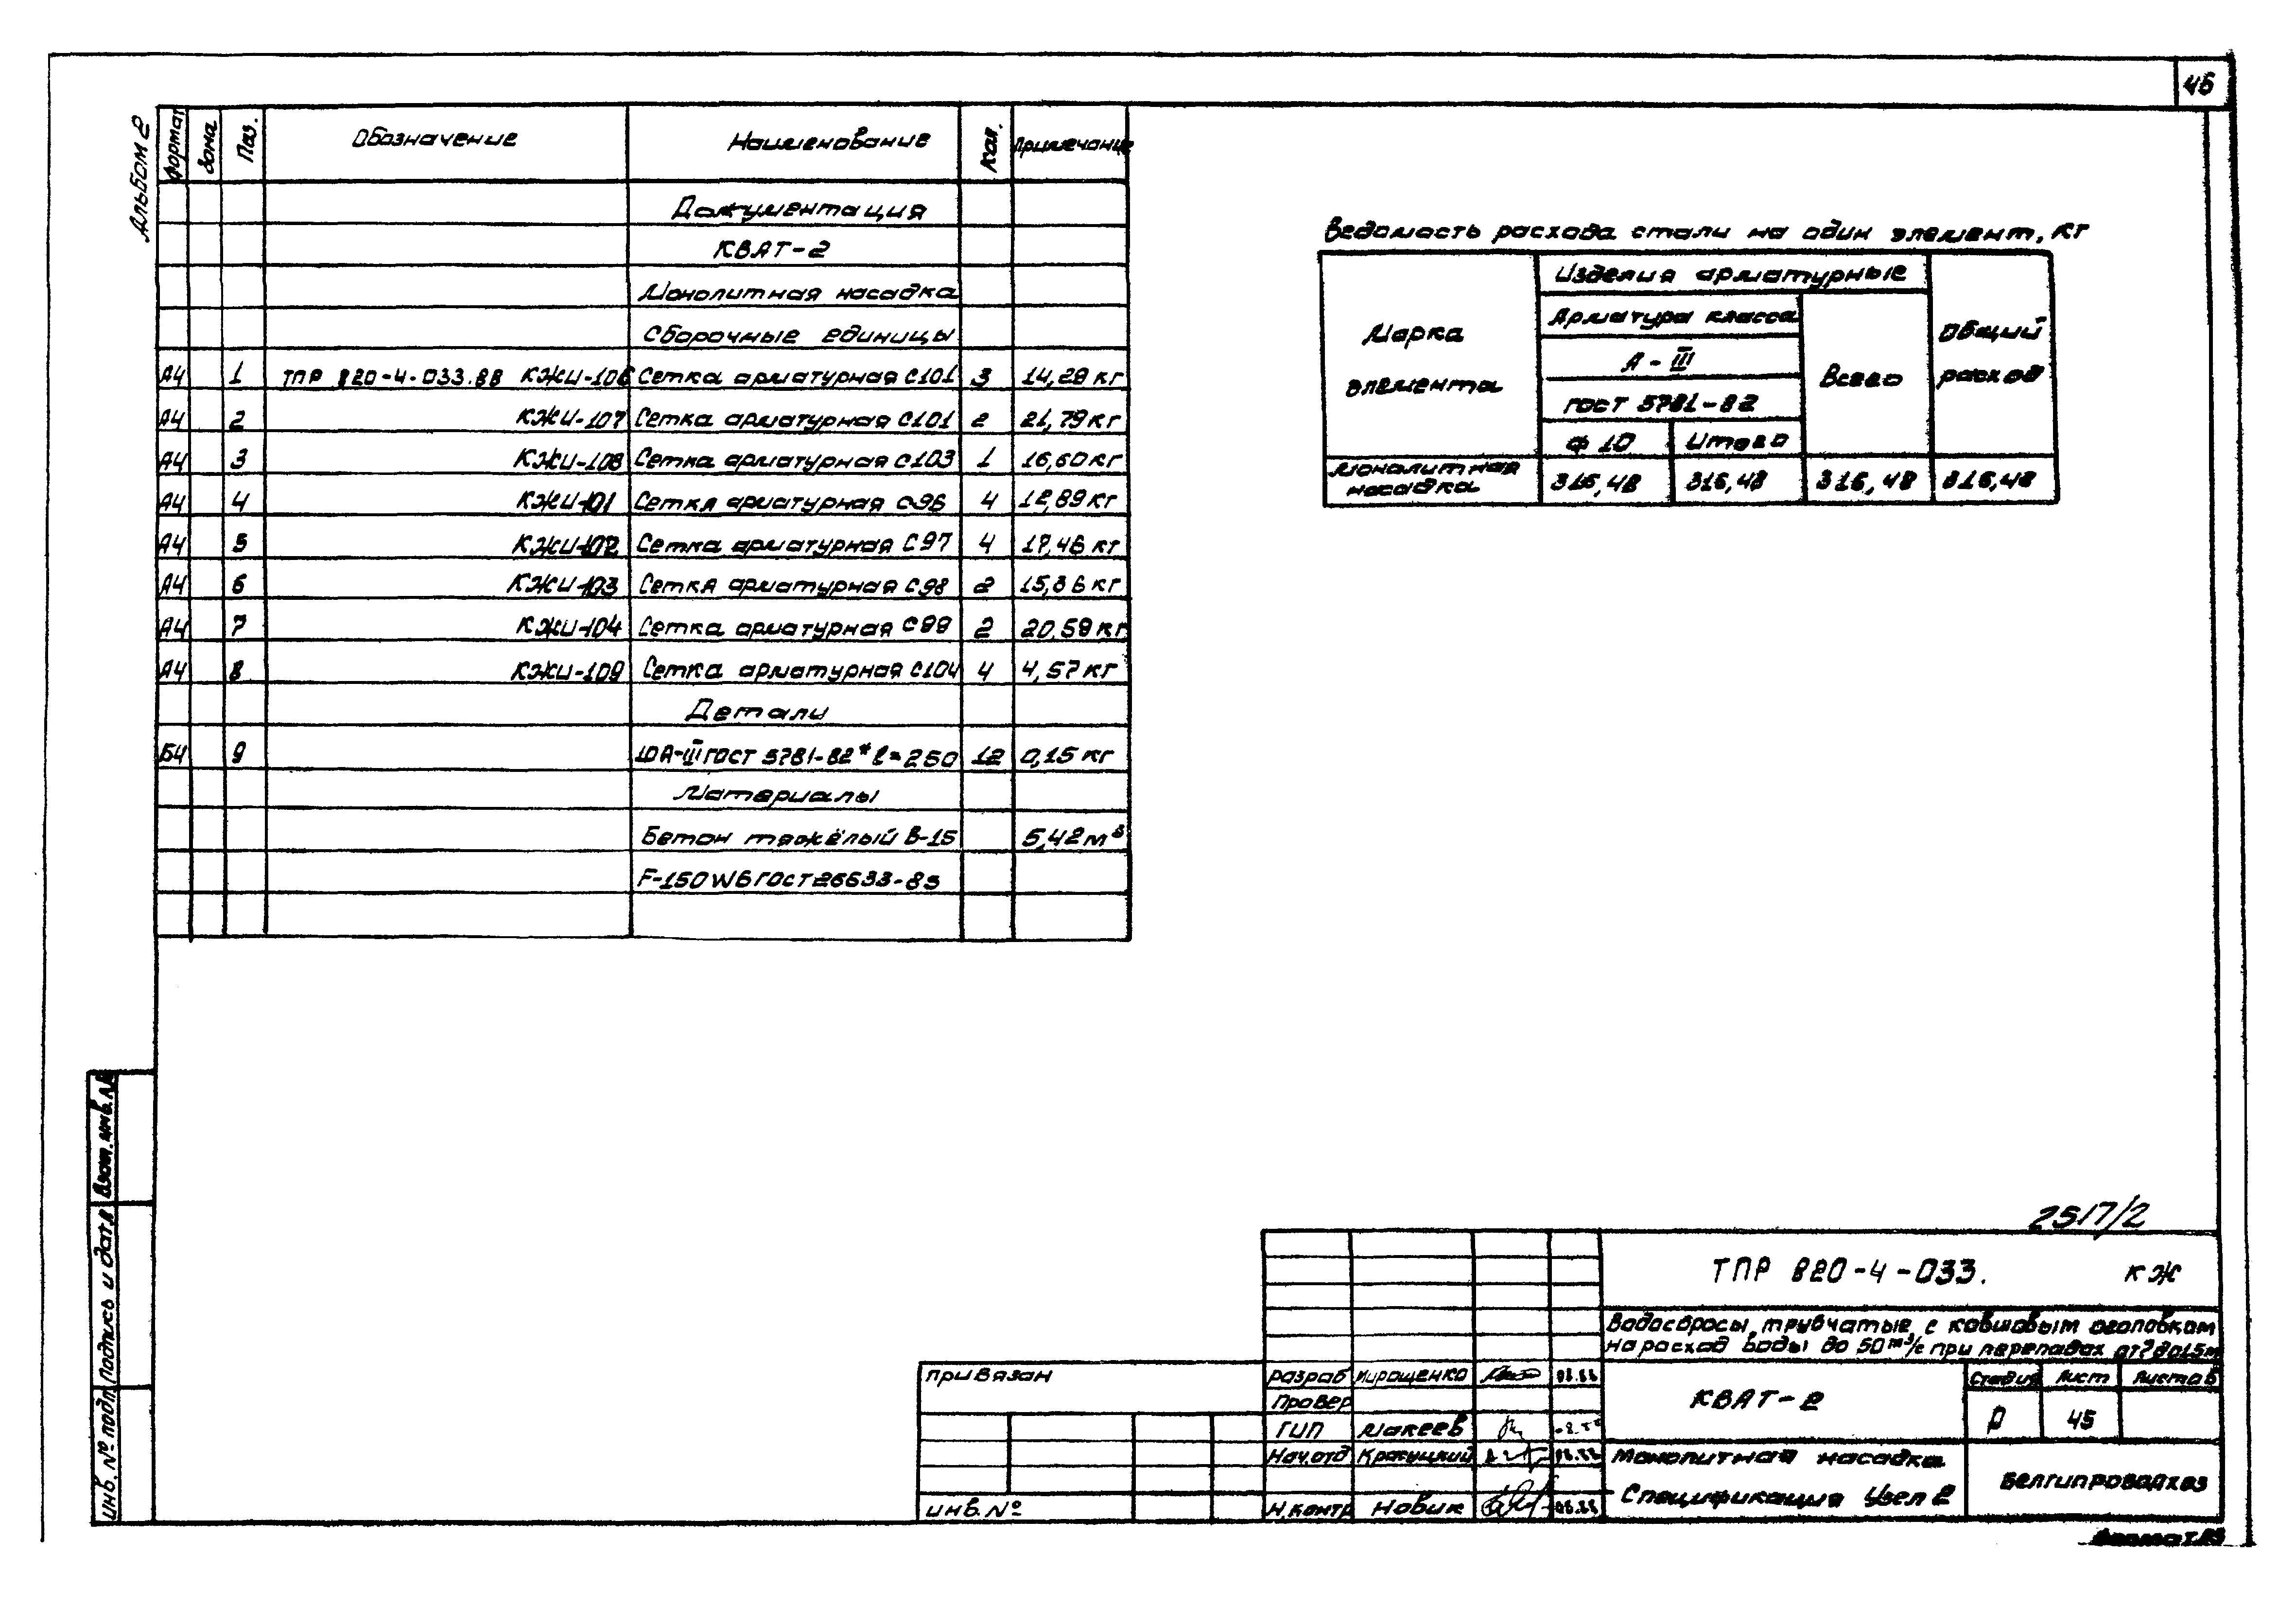 46
Альбом 2
Формат Зона Поз. Обозначение Наименование Кол. Примечание
Документация
КВАТ-2
Монолитная насадка
Сборочные единицы
А4 1 ТПР 820-4-033.88 КЖИ-106 Сетка арматурная С101 3 14,29 кг
А4 2 КЖИ-107 Сетка арматурная С101 2 21,79 кг
А4 3 КЖИ-108 Сетка арматурная С103 1 16,60 кг
А4 4 КЖИ-101 Сетка арматурная С96 4 12,89 кг
А4 5 КЖИ-102 Сетка арматурная С97 4 17,46 кг
А4 6 КЖИ-103 Сетка арматурная С98 2 15,36 кг
А4 7 КЖИ-104 Сетка арматурная С99 2 20,59 кг
А4 8 КЖИ-109 Сетка арматурная С104 4 4,57 кг
Детали
Б4 9 10А-III ГОСТ 5781-82* ℓ=250 12 0,15 кг
Материалы
Бетон тяжёлый В-15 5,42 м³
F-150 W6 ГОСТ 26633-85
Ведомость расхода стали на один элемент, кг
Марка элемента
Изделия арматурные
Арматура класса
А-III
ГОСТ 5781-82
Ф 10 Итого
Всего
Общий расход
Монолитная насадка 316,48 316,48 316,48 316,48
Взам. инв. №
Подпись и дата
Инв. № подл.
2517/2
ТПР 820-4-033. КЖ
Водосбросы трубчатые с ковшовым оголовком
на расход воды до 50 м³/с при перепадах от 2 до 15 м
привязан
инв. №
Разраб Мирощенко 08.88
Провер
ГИП Макеев
Нач.отд 08.88
Н.контр Новик 08.88
КВАТ-2
Стадия Лист Листов
Р 45
Монолитная насадка
Спецификация Узел 2
Белгипроводхоз
Формат А3